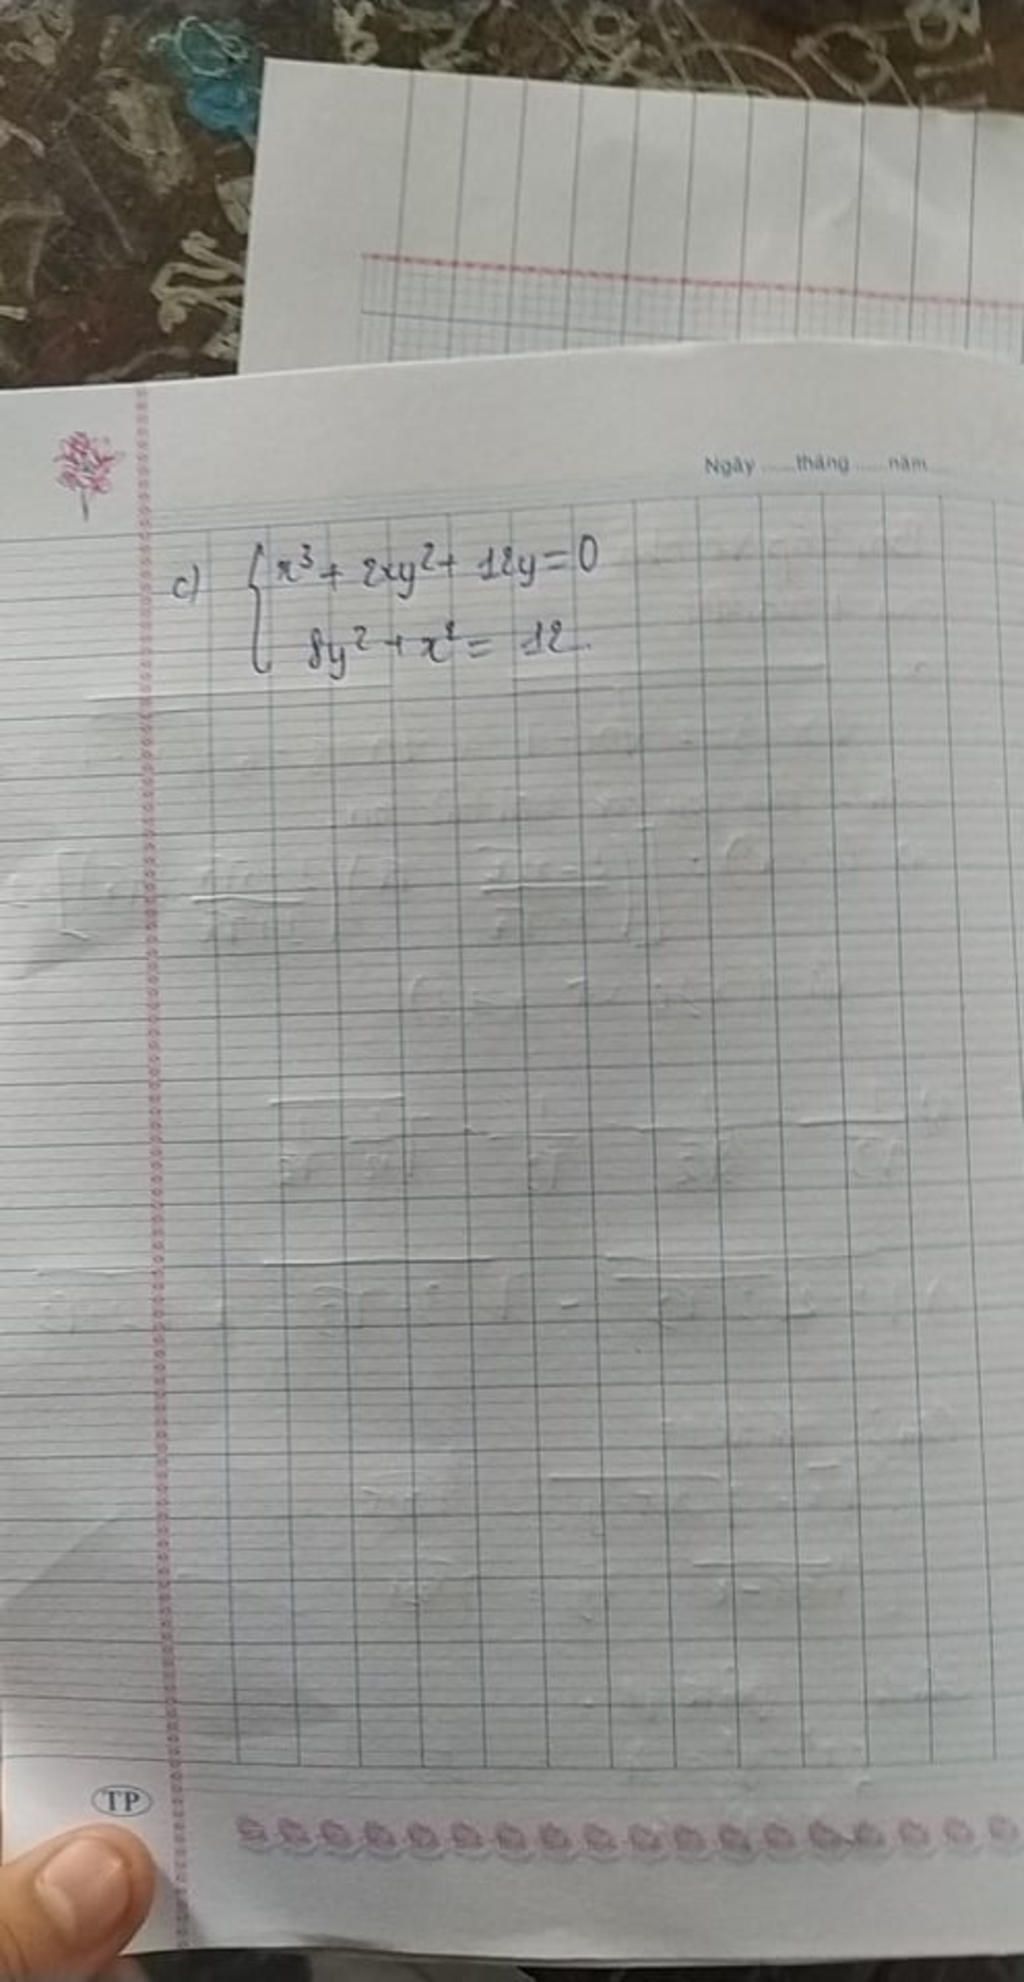 Ngày ...... tháng ...... năm ......
c) { x³ + 2xy² + 12y = 0
8y² + x² = 12.
TP